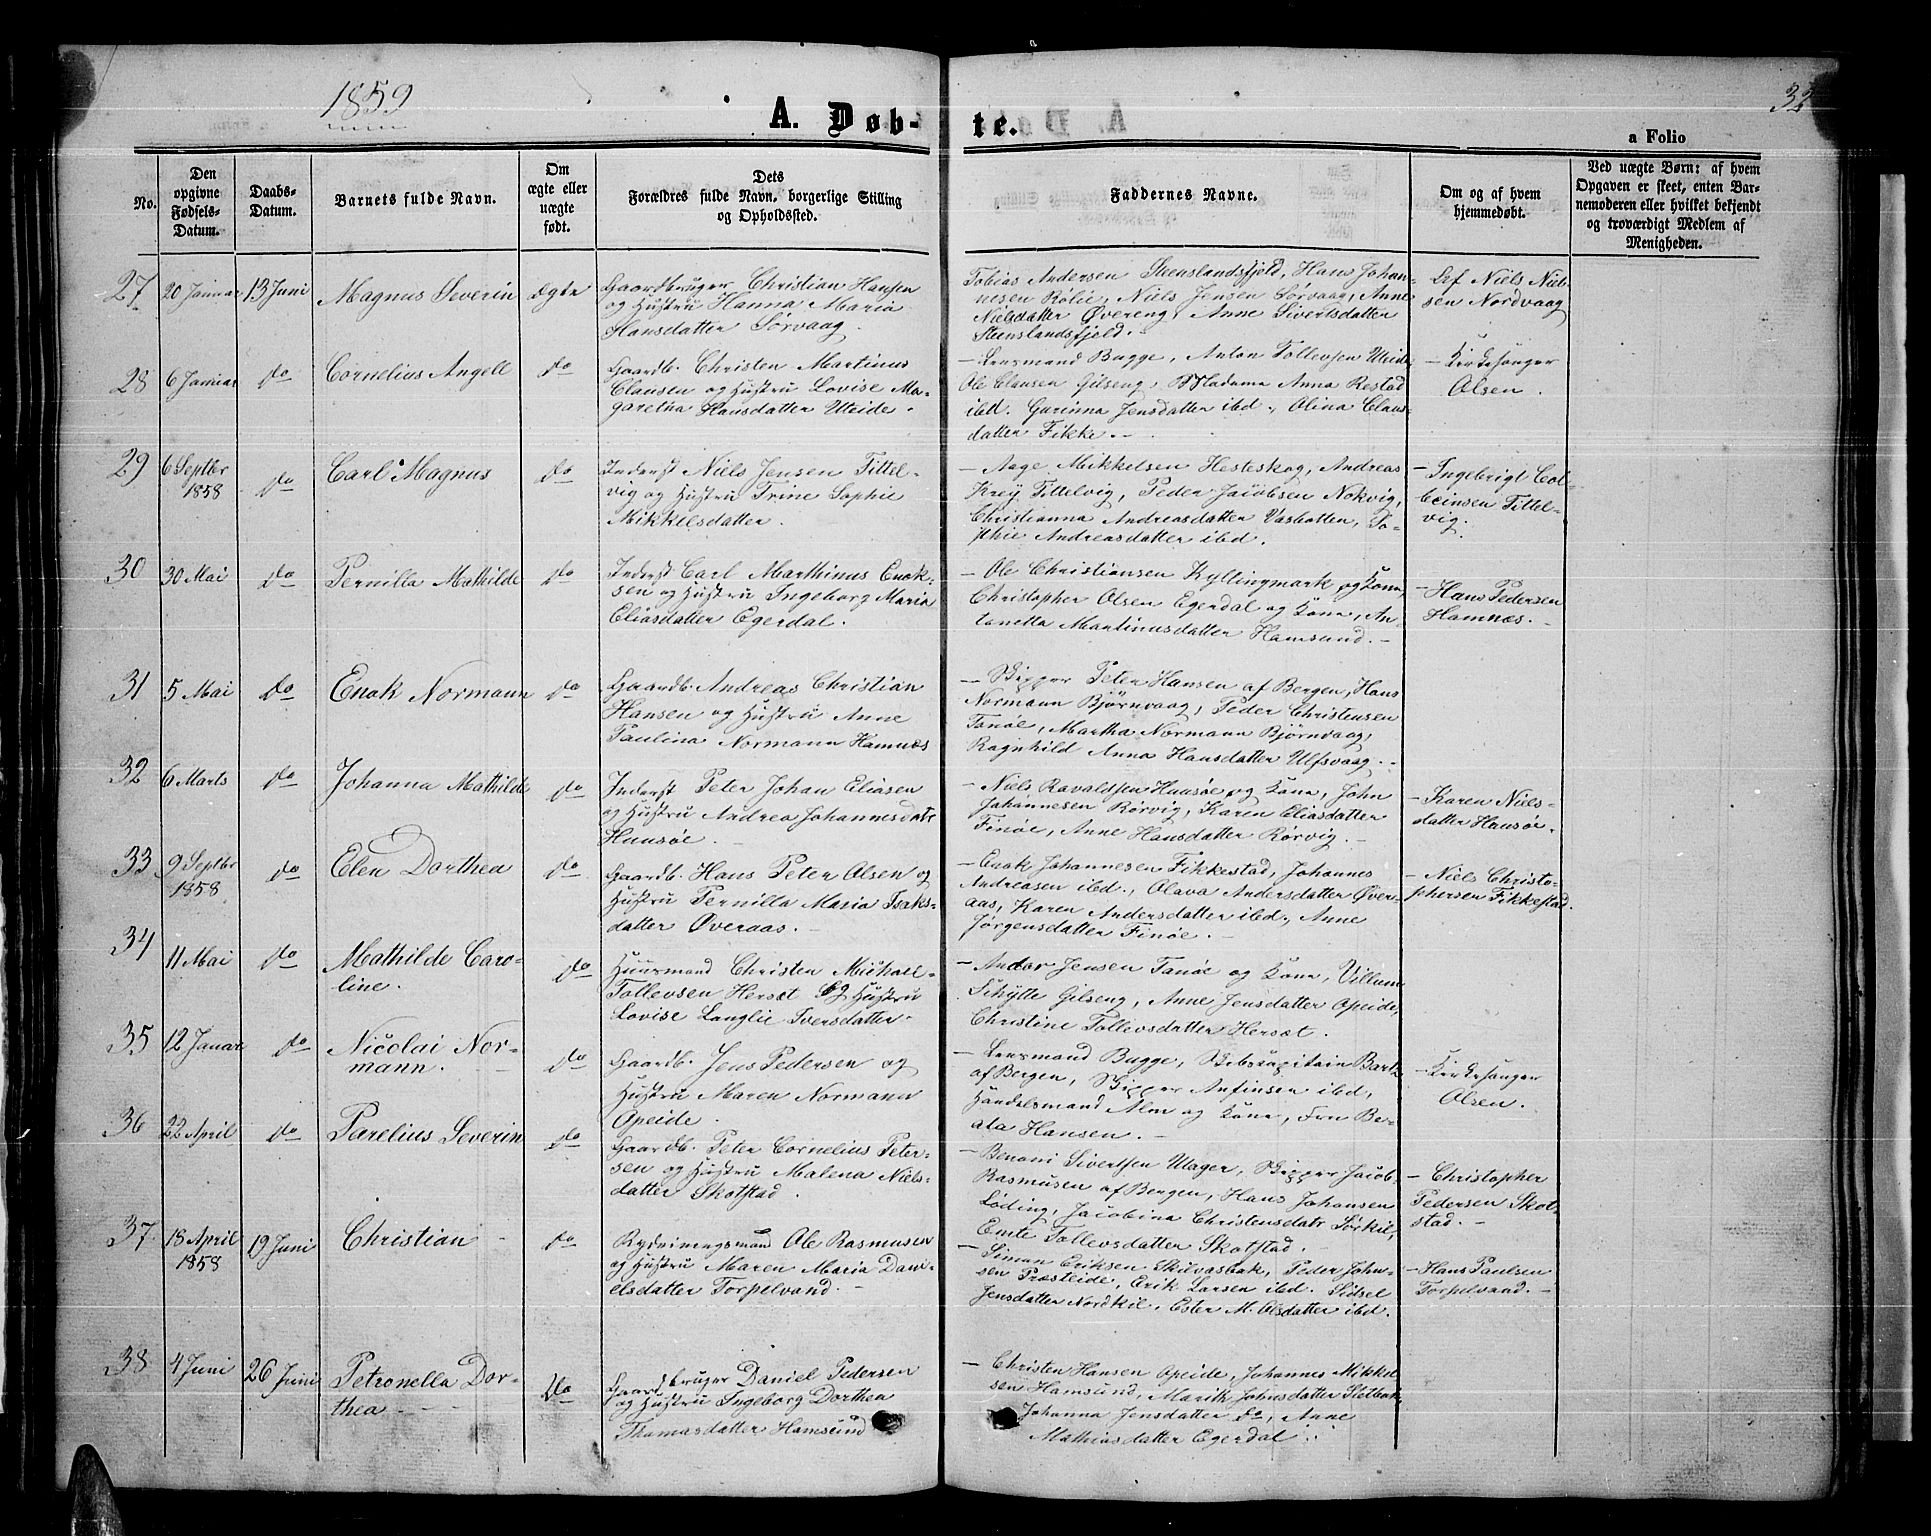 1859
33
A. Døb-
te.
a Folio
No.
Den
opgivne
Fødsels-
Datum.
Daabs-
Datum.
Barnets fulde Navn.
Om
ægte eller
uægte
født.
Dets
Forældres fulde Navn, borgerlige Stilling
og Opholdssted.
Faddernes Navne.
Om og af hvem
hjemmedøbt.
Ved uægte Børn: af hvem
Opgaven er skeet, enten Bar-
nemoderen eller hvilket bekjendt
og troværdigt Medlem af
Menigheden.
27
20 Januar
13 Juni
Magnus Severin
Ægte
Gaardbruger Christian Hansen
og Hustru Hanna Maria
Hansdatter Sørvaag.
Tobias Andersen Steenslandsfjeld, Hans Johan-
nesen Rølie, Niels Jensen Sørvaag, Anne
Nielsdatter Øvereng, Anne Sivertsdatter
Steenslandsfjeld.
Af Niels Niel-
sen Nordvaag
28
6 Januar
do
Cornelius Angell
do
Gaardb. Christen Martinus
Clausen og Hustru Lovise Ma-
garetha Hansdatter Uteide.
- Lensmand Bugge, Anton Tollevsen Uteide,
Ole Clausen Gilseng, Madame Anna Restad
ibd. Gurinna Jensdatter ibd., Olina Claus-
datter Fikke.-
- Kirkesanger
Olsen.
29
6 Septbr
1858
do
Carl Magnus
do
Inderst Niels Jensen Tittel-
vig og Hustru Trine Sophie
Mikkelsdatter.
- Aage Mikkelsen Hesteskog, Andreas
Kreÿ Tittelvig, Peder Jacobsen Nokvig,
Christianna Andreasdatter Vasbotten, So-
phie Andreasdatter ibd.
- Ingebrigt Col-
beinsen Tittel-
vig.
30
30 Mai
do
Pernilla Mathilde
do
Inderst Carl Marthinus Enok-
sen og Hustru Ingeborg Maria
Eliasdatter Egerdal.
- Ole Christiansen Kyllingmark og Kone,
Christopher Olsen Egerdal og Kone, An-
tonetta Martinusdatter Hamsund.-
- Hans Pedersen
Hamnæs.-
31
5 Mai
do
Enok Normann
do
Gaardb. Andreas Christian
Hansen og Hustru Anne
Paulina Normann Hamnæs
- Skipper Peter Hansen af Bergen, Hans
Normann Bjørnvaag, Peder Christensen
Tanøe, Martha Normann Bjørnvaag,
Ragnhild Anna Hansdatter Ulfsvaag.-
32
6 Marts
do
Johanna Mathilde
do
Inderst Peter Johan Eliasen
og Hustru Andrea Johannesdatr
Haasøe.
- Niels Ravaldsen Haasøe og Kone, John
Johannesen Rørvig, Karen Eliasdatter
Finøe, Anne Hansdatter Rørvig.-
- Karen Niels-
datter Haasøe.
33
9 Septbr
1858
do
Elen Dorthea
do
Gaardb. Hans Peter Olsen og
Hustru Pernilla Maria Isaks-
datter Øveraas.-
- Enok Johannesen Fikkestad, Johannes
Andreasen ibd., Olava Andersdatter Øver-
aas, Karen Andersdatter ibd., Anne
Jørgensdatter Finøe.-
- Niels Christo-
phersen Fikkestad.
34
11 Mai
do
Mathilde Caro-
line.
do
Huusmand Christen Michael
Tollevsen Hersæt og Hustru
Lovise Langlie Iversdatter.
- Andor Jensen Tanøe og Kone, Villum
Schytte Gilseng, Anne Jensdatter Opeide,
Christine Tollevsdatter Hersæt.
35
12 Januar
do
Nicolai Nor-
mann.
do
Gaardb. Jens Pedersen og
Hustru Maren Normann
Opeide.
- Lensmand Bugge, Skibscapitain Bartz
af Bergen, Skipper Anfinsen ibd,
Handelsmand Alm og Kone, Frn Be-
ata Hansen.-
- Kirkesanger
Olsen.
36
22 April
do
Parelius Severin
do
Gaardb. Peter Cornelius Peter-
sen og Hustru Malena Niels-
datter Skotstad.
- Benoni Sivertsen Ulager, Skipper Jacob
Rasmusen af Bergen, Hans Johansen
Løding, Jacobina Christensdatr Sørkil,
Emte Tollevsdatter Skotstad.
- Christopher
Pedersen Skot-
stad.-
37
18 April
1858
19 Juni
Christian
do
Rydningsmand Ole Rasmusen
og Hustru Maren Maria Dani-
elsdatter Torpelvand.-
- Simon Eriksen Skilvasbak, Peder John-
sen Præsteide, Erik Larsen ibd. Sidsel
Jensdatter Nordkil, Ester M. Olsdatter ibd.
- Hans Paulsen
Torpelvand.-
38
4 Juni
26 Juni
Petronella Dor-
thea
Do
Gaardbruger Daniel Pedersen
og Hustru Ingeborg Dorthea
Thomasdatter Hamsund
- Christen Hansen Opeide, Johannes Mikkel
sen Hamsund, Marith Johnsdatter Sletbak
Johanna Jensdatter do, Anne
Mathiasdatter Egerdal.